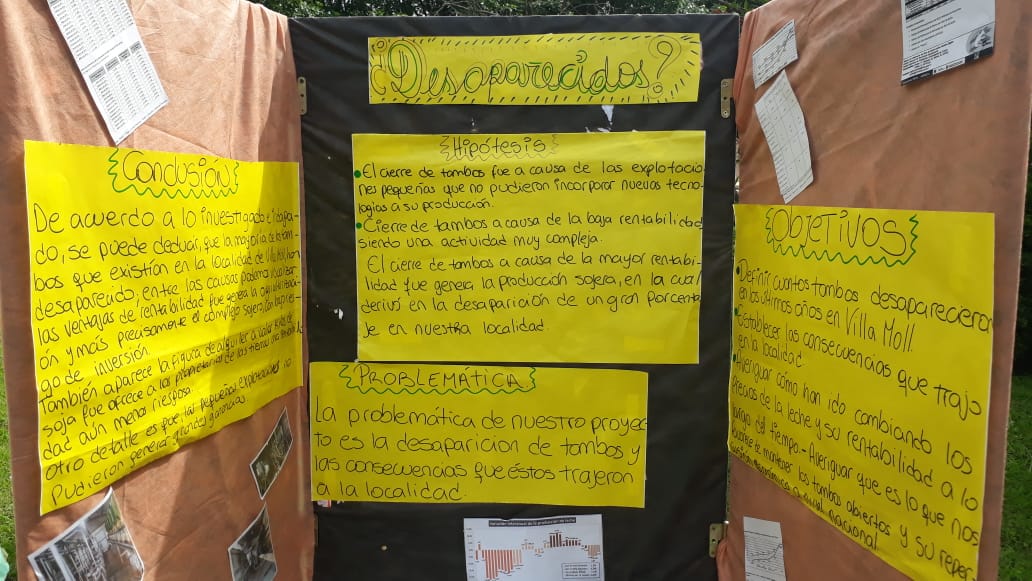 ¿Desaparecidos?
Hipótesis
El cierre de tambos fue a causa de las explotacio
nes pequeñas que no pudieron incorporar nuevas tecno-
logias a su producción.
Cierre de tambos a causa de la baja rentabilidad
siendo una actividad muy compleja.
El cierre de tambos a causa de la mayor rentabi-
lidad que genera la producción sojera, en la cual
derivó en la desaparición de un gran porcenta
je en nuestra localidad.
PROBLEMÁTICA
La problemática de nuestro proyec-
to es la desaparición de tambos y
las consecuencias que éstos trajeron
a la localidad.
Conclusión
De acuerdo a lo investigado e indaga-
do, se puede deducir, que la mayoría de los tam-
bos que existión en la localidad de Villa Moll, han
desaparecido, entre las causas podemos
las ventajas de rentabilidad que genera la
ón y mas precisamente el complejo sojero, con bajo ries-
go de inversión.
También aparece la figura de alquiler a valor Kilos de
soja que ofrece a los propietarios de las tierras una
dad aún menos riesgosa.
otro detalle es que las pequeñas explotaciones no
Pudieron generar grandes ganancias.
OBJETIVOS
Definir cuantos tambos desaparecieron
en los últimos años en Villa Moll.
Establecer las consecuencias que trajo
en la localidad.
Averiguar cómo han ido cambiando los
precios de la leche y su rentabilidad a lo
largo del tiempo.- Averiguar que es lo que nos
de mantener los tambos abiertos y su reper
económica a nivel nacional.
Variación interanual de la producción de leche